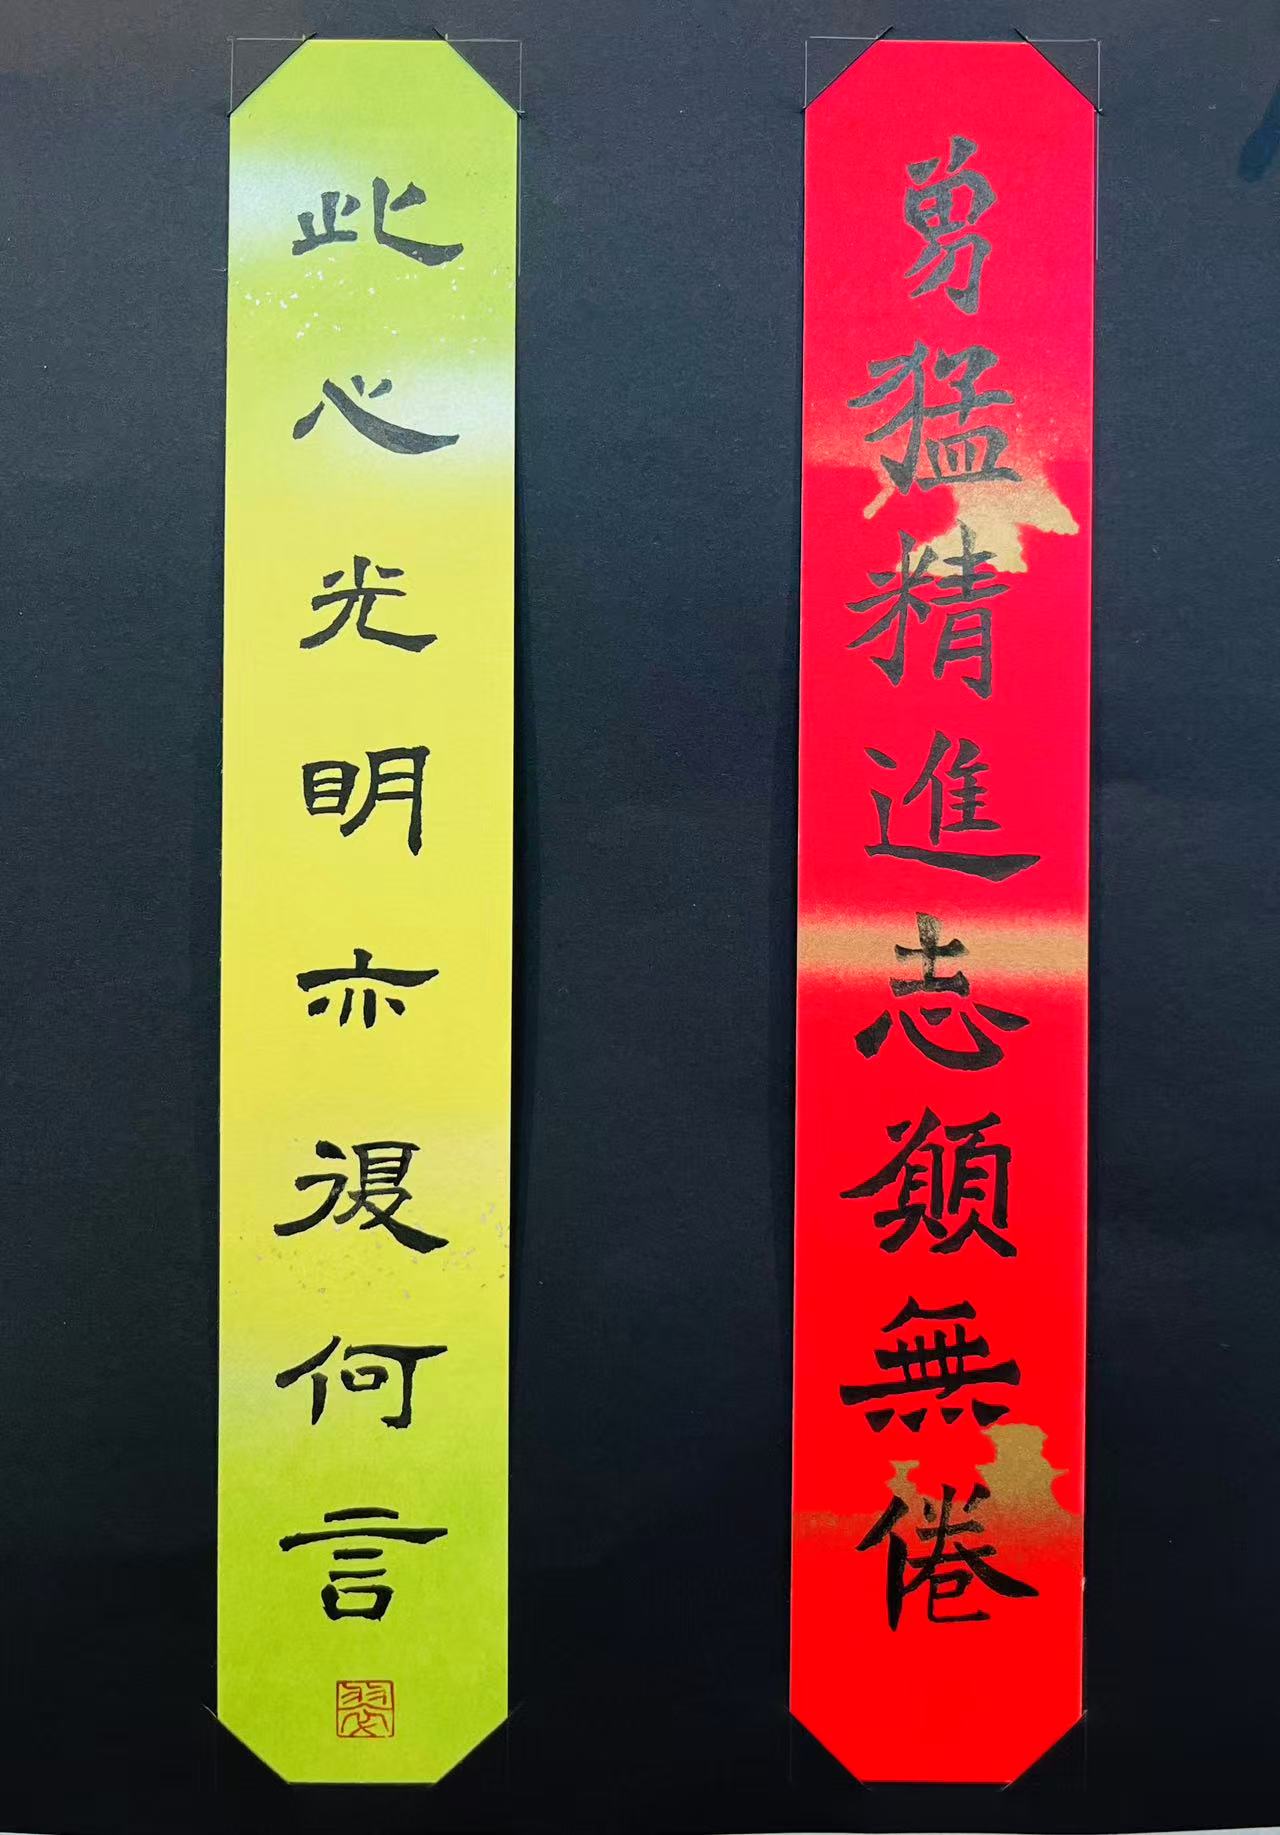 勇猛精進志願無倦
此心光明亦復何言